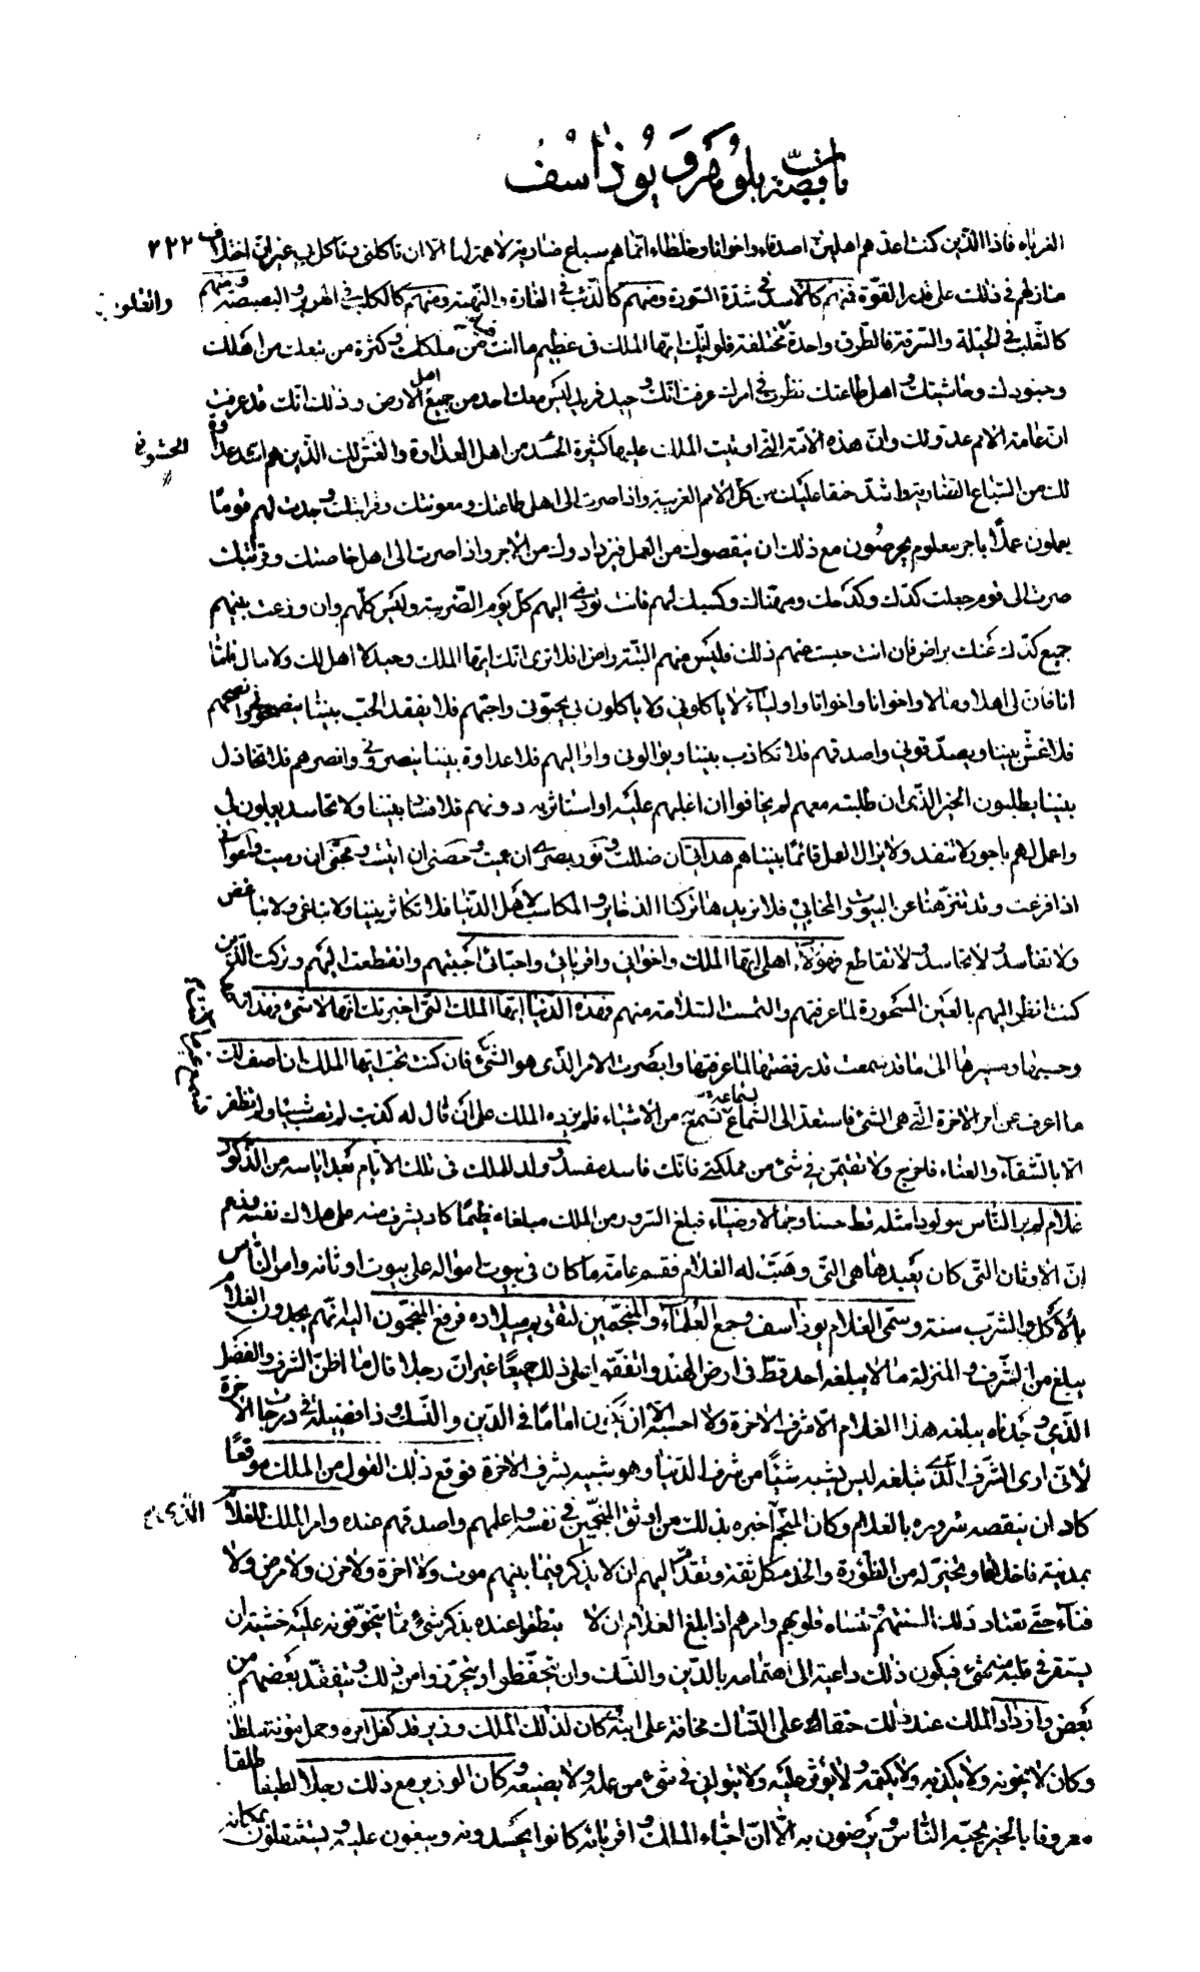 باب قصة بلوهر و يوذاسف
الغرباء فاذا الذين كنت اعدهم اهلين و اصدقاء و اخوانا و خلطاء انما هم سباع ضارية لا همة لها الا ان تاكلني و تاكل بي غير ان اختلاف ٢٢٢
منازلهم في ذلك على قدر القوة فمنهم كالاسد في شدة السورة و منهم كالذئب في الغارة و النهمة و منهم كالكلب في الهرير و البصبصة و منهم
كالثعلب في الحيلة و السرقة فالطرق واحدة مختلفة فلو انك ايها الملك في عظيم ما انت فيه من ملكك و كثرة من تبعك من اهلك
و جنودك و حاشيتك و اهل طاعتك نظرت في امرك عرفت انك وحيد فريد ليس معك احد من جميع اهل الارض و ذلك انك قد عرفت
ان عامة الامم عدو لك و ان هذه الامة التي اوتيت الملك عليها كثيرة الحسد من اهل العداوة و الغش لك الذين هم اشد عداوة
لك من السباع الضارية و اشد حنقا عليك من كل الامم الغريبة و اذا صرت الى اهل طاعتك و معونتك و قرابتك وجدت لهم قوما
يعملون عملا باجر معلوم يحرصون مع ذلك ان ينقصوك من العمل فيزدادوك من الاجر و اذا صرت الى اهل خاصتك و قرابتك
صرت الى قوم جعلت كدك و كدحك و مهناك و كسبك لهم فانت تؤدي اليهم كل يوم الضريبة و ليس كلهم و ان وزعت بينهم
جميع كدك عنك براض فان انت حبست عنهم ذلك فليس منهم البتة راض افلا ترى انك ايها الملك وحيد لا اهل لك و لا مال فاما
انا فان لي اهلا و مالا و اخوانا و اخوانا و اولياء لا ياكلوني و لا ياكلون بي يحبوني و احبهم فلا يفقد الحب بيننا ينصحوني و انصحهم
فلا غش بيننا و يصدقوني و اصدقهم فلا تكاذب بيننا و يوالوني و اواليهم فلا عداوة بيننا ينصروني و انصرهم فلا تخاذل
بيننا يطلبون الخير الذي ان طلبته معهم لم يخافوا ان اغلبهم عليه او استاثر به دونهم فلا فساد بيننا و لا تحاسد يعملون لي
و اعمل لهم باجور لا تنفد و لا يزال العمل قائما بيننا هم هداتي ان ضللت و نور بصري ان عميت و حصني ان اتيت و مجني ان رميت و اعواني
اذا فزعت و قد تنزهنا عن البيوت و المخابي فلا نريدها تركنا الذخاير و المكاسب لاهل الدنيا فلا تكاثر بيننا و لا تباغي و لا تباغض
و لا تفاسد و لا تحاسد و لا تقاطع فهؤلاء اهلي ايها الملك و اخواني و اقربائي و احبائي احببتهم و انقطعت اليهم و تركت الذين
كنت انظر اليهم بالعين المسحورة لما عرفتهم و التمست السلامة منهم فهذه الدنيا ايها الملك التي اخبرتك انها لا شيء فهذا نسبها
و حسبها و مسيرها الى ما قد سمعت قد رفضتها لما عرفتها و ابصرت الامر الذي هو الشيء فان كنت تحب ايها الملك ان اصف لك
ما اعرف عن امر الاخرة التي هي الشيء فاستعد الى السماع تسمع به من الاشياء فلم يزده الملك على ان قال له كذبت لم تصب شيئا و لم تظفر
الا بالشقاء و العناء فاخرج و لا تقيمن في شيء من مملكتي فانك فاسد مفسد و ولد للملك في تلك الايام بعد اياسه من الذكور
غلام لم ير الناس مولودا مثله قط حسنا و جمالا و ضياء فبلغ السرور من الملك مبلغا عظيما كاد يشرف منه على هلاك نفسه و زعم
ان الاوثان التي كان يعبدها هي التي وهبت له الغلام فقسم عامة ما كان في بيوت امواله على بيوت اوثانه و امر الناس
بالاكل و الشرب سنة و سمى الغلام يوذاسف و جمع العلماء و المنجمين لتقويم ميلاده فرفع المنجمون اليه انهم يجدون الغلام
يبلغ من الشرف و المنزلة ما لا يبلغه احد قط في ارض الهند و اتفقوا على ذلك جميعا غير ان رجلا قال ما اظن الشرف و الفضل
الذي وجدناه يبلغه هذا الغلام الا شرف الاخرة و لا احسبه الا ان يكون اماما في الدين و النسك و ذا فضيلة في درجات الاخرة
لاني ارى الشرف الذي تبلغه ليس يشبه شيئا من شرف الدنيا و هو شبيه بشرف الاخرة فوقع ذلك القول من الملك موقعا
كاد ان ينقصه سروره بالغلام و كان المنجم الذي اخبره بذلك من اوثق المنجمين في نفسه و اعلمهم و اصدقهم عنده و امر الملك للغلام
بمدينة فاخلاها و تخير له من الظؤرة و الخدم كل ثقة و تقدم اليهم ان لا يذكر فيما بينهم موت و لا اخرة و لا حزن و لا مرض و لا
فناء حتى تعتاد ذلك السنتهم و تنساه قلوبهم و امرهم اذا بلغ الغلام ان لا ينطقوا عنده بذكر شيء مما يتخوفونه عليه خشية ان
يستقر في قلبه منه شيء فيكون ذلك داعية الى اهتمامه بالدين و النسك و ان يتحفظوا و يتحرزوا من ذلك و يتفقد بعضهم من
بعض و ازداد الملك عند ذلك حنقا على النساك مخافة على ابنه و كان لذلك الملك وزير قد كفل امره و حمل مؤنة سلطانه
و كان لا يخونه و لا يكذبه و لا يكتمه و لا يؤثر عليه و لا يتوانى في شيء من عمله و لا يضيعه و كان الوزير مع ذلك رجلا لطيفا طلقا
معروفا بالخير يحبه الناس و يرضون به الا ان احباء الملك و اقربائه كانوا يحسدونه و يبغون عليه و يستثقلون بمكانه